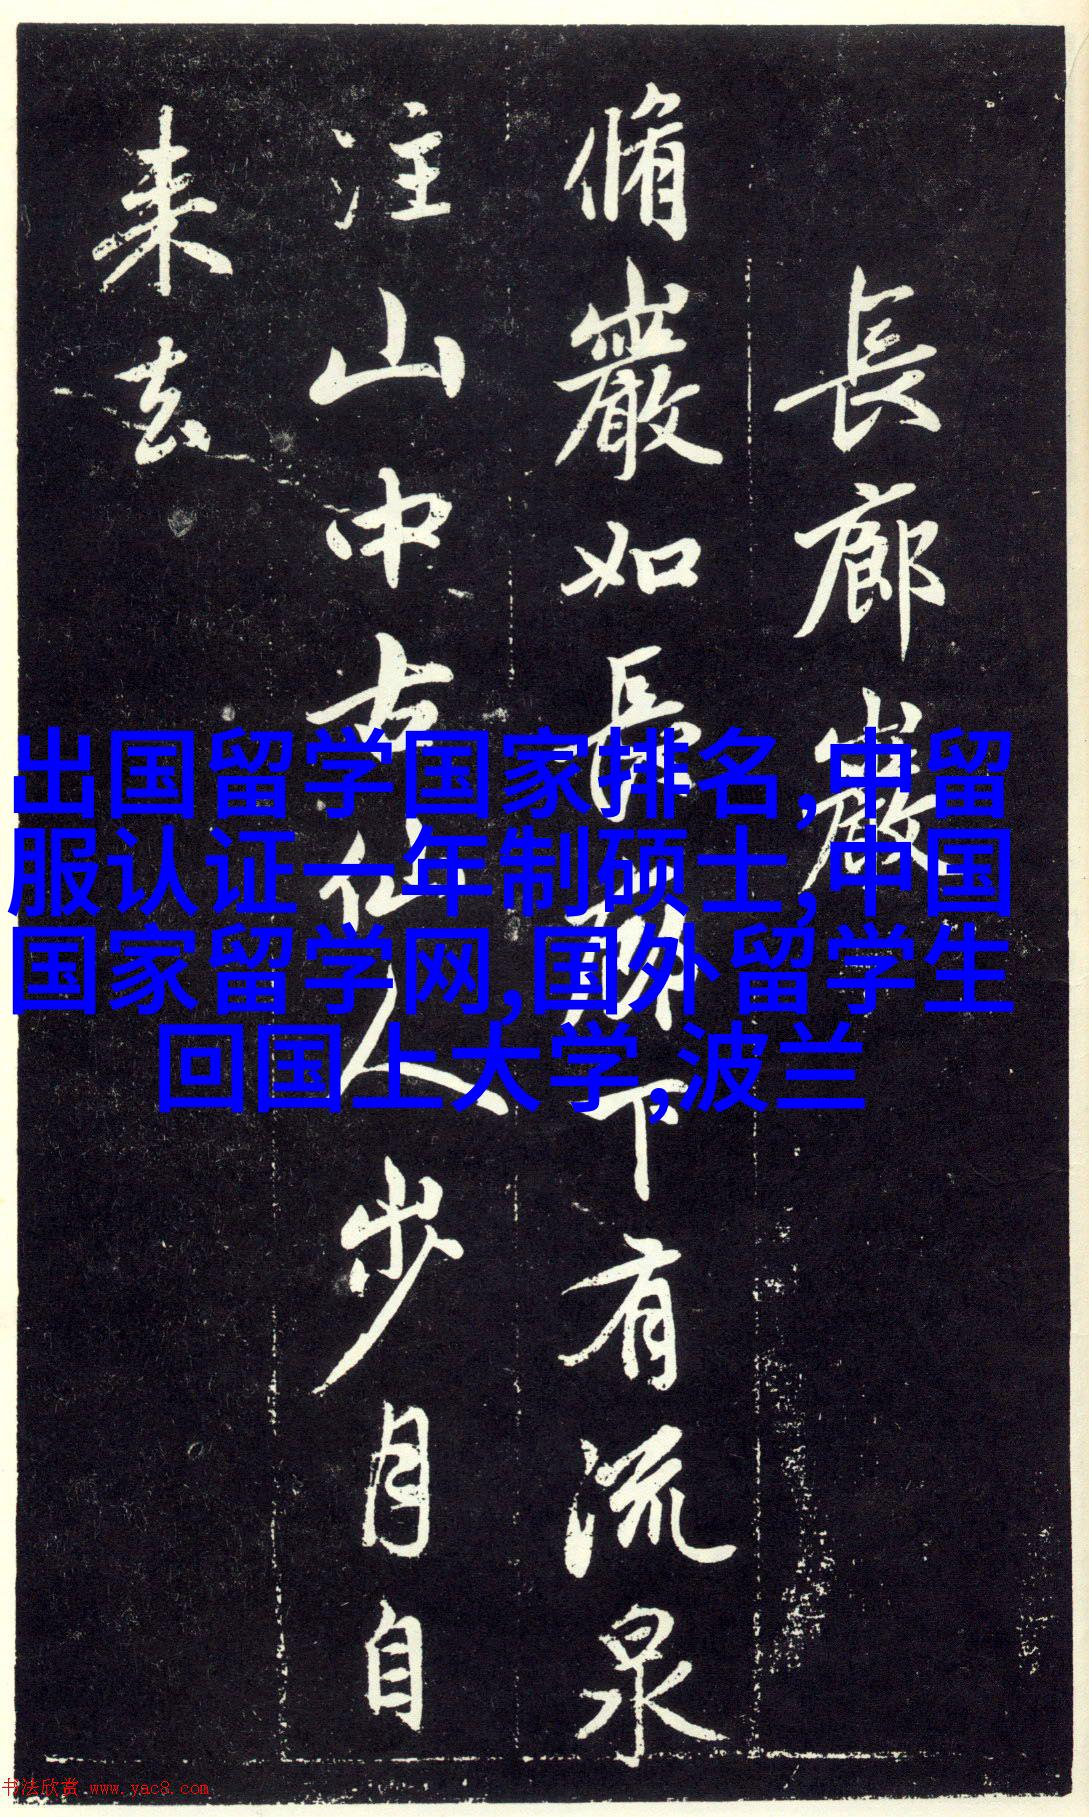 長廊巖
脩巖如長廊下有流泉
注山中古仙人步月自
来去
出国留学国家排名,中留
服认证一年制硕士,中国
国家留学网,国外留学生
回国上大学,波兰
书法欣赏 www.yac8.com